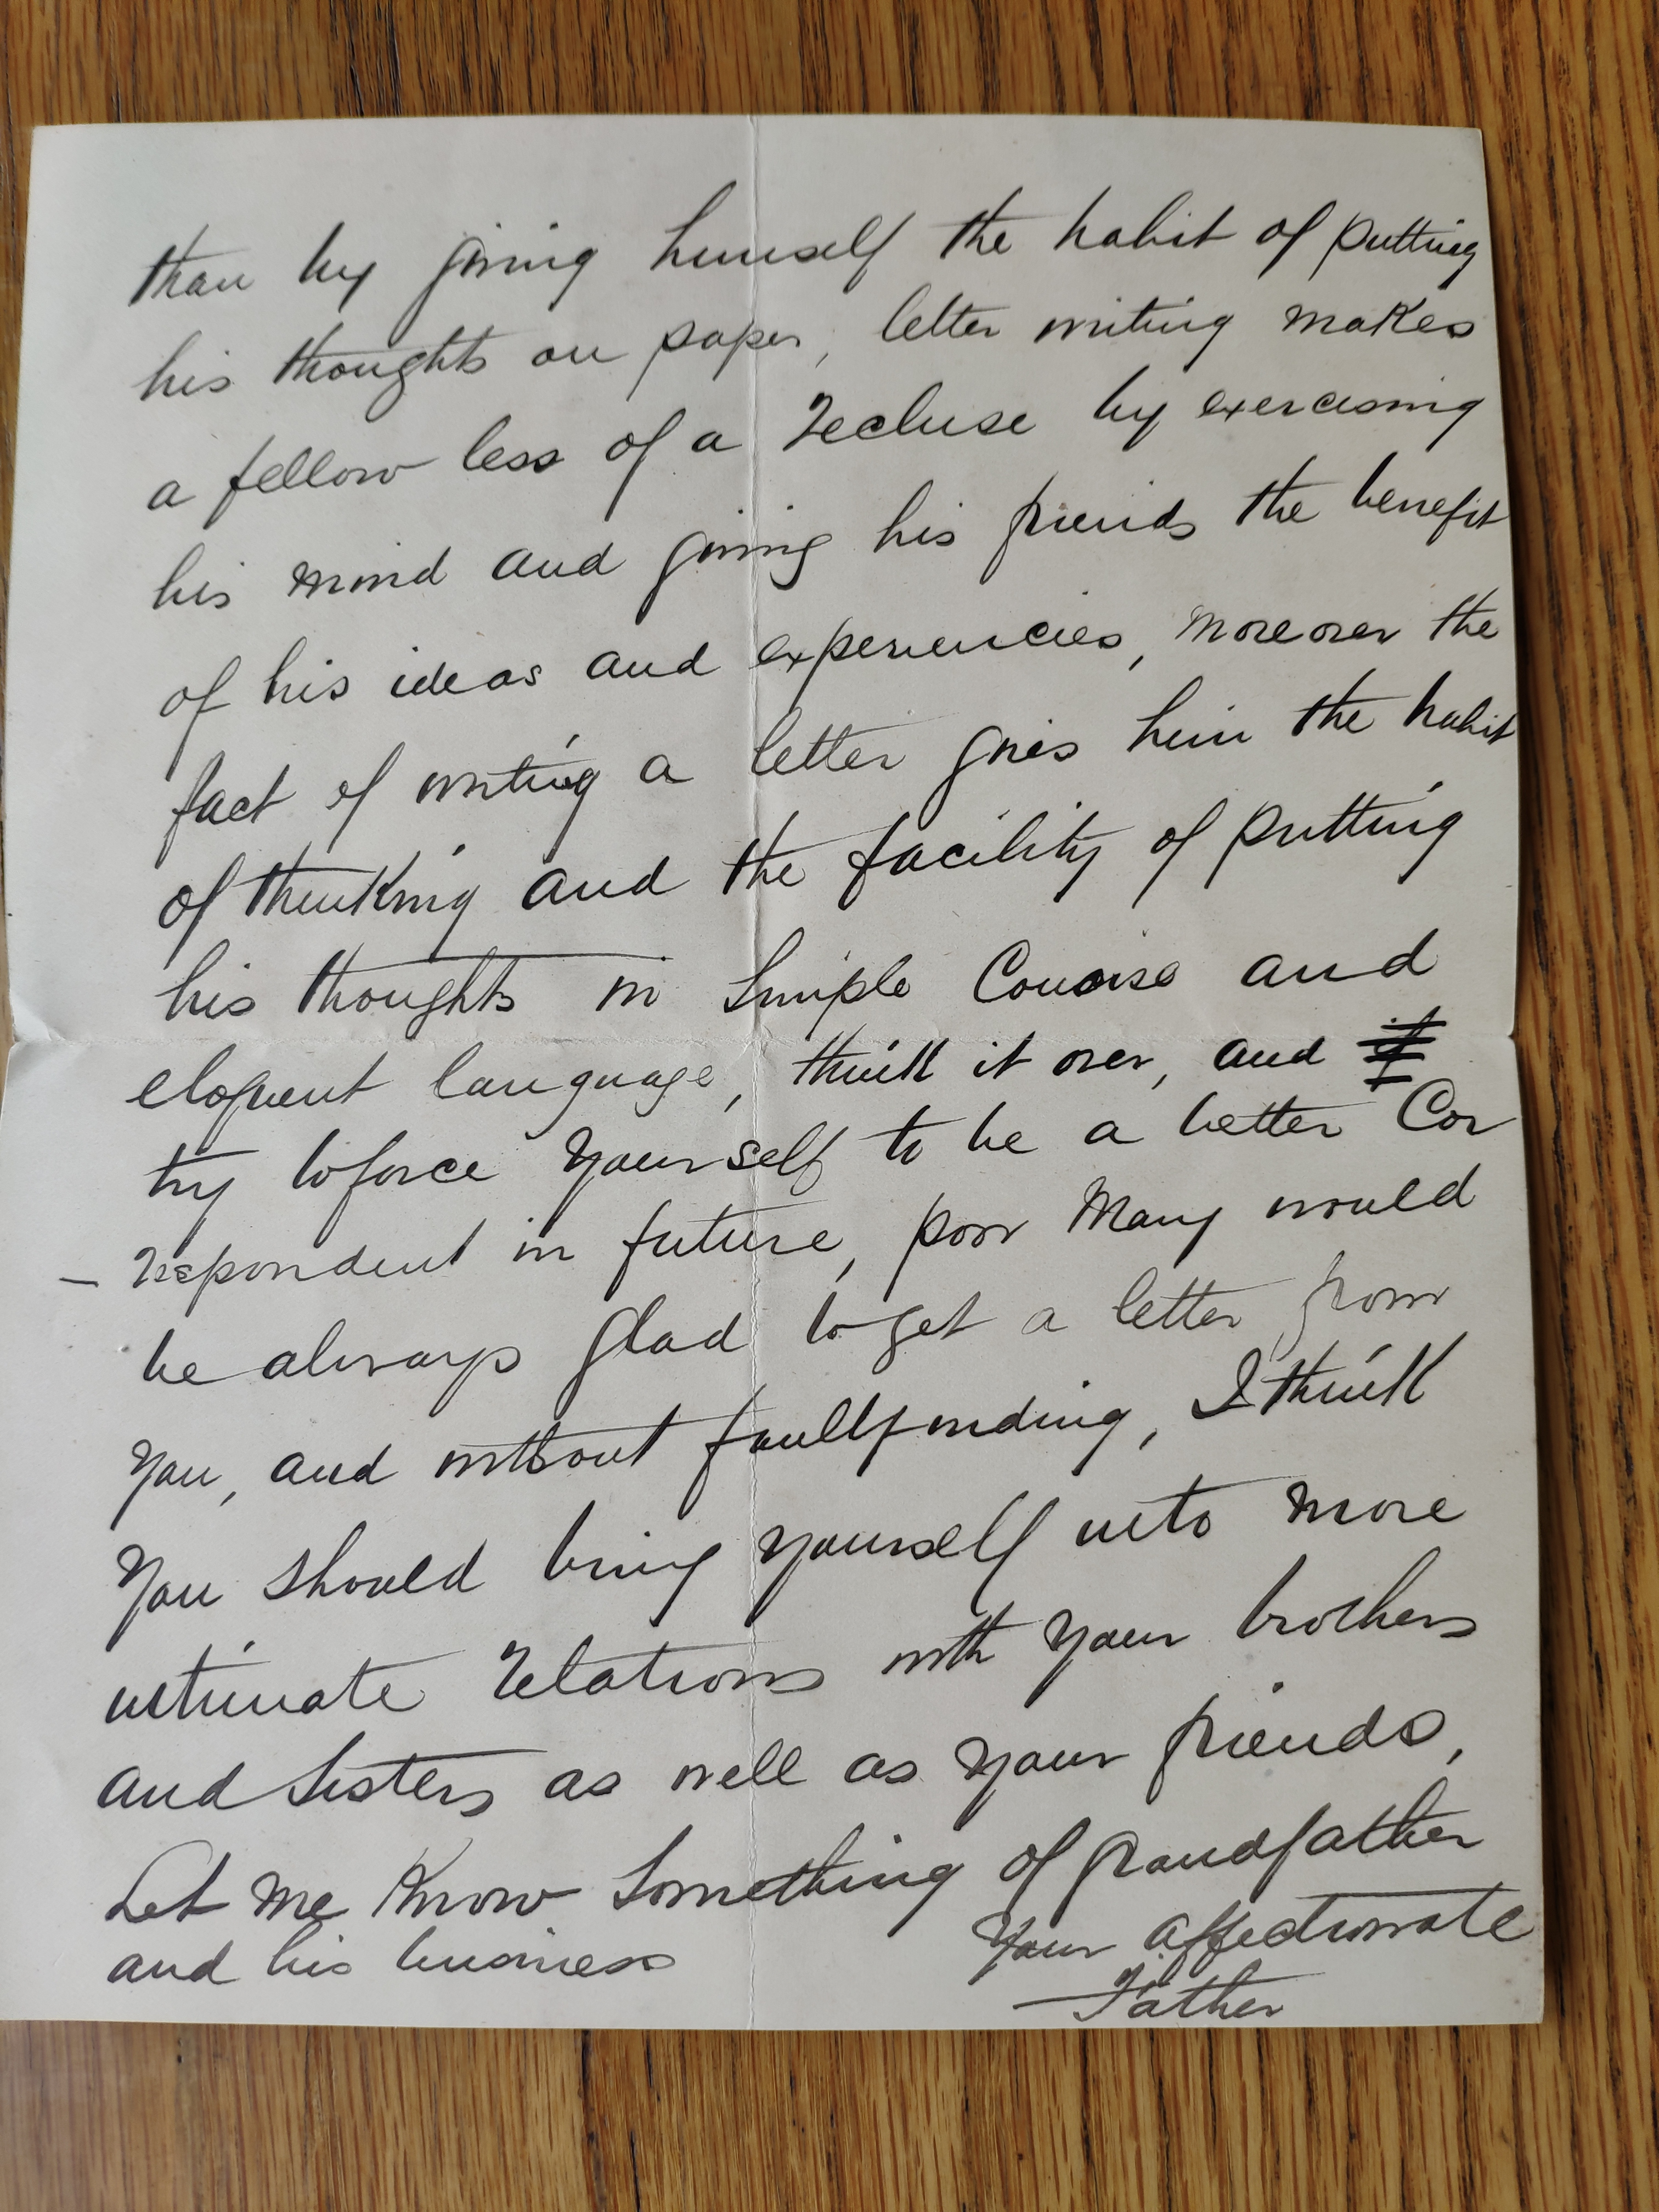 than by giving himself the habit of putting
his thoughts on paper, letter writing makes
a fellow less of a recluse by exercising
his mind and giving his friends the benefit
of his ideas and experiencies, moreover the
fact of writing a letter gives him the habit
of thinking and the facility of putting
his thoughts in Simple Concise and
eloquent language, think it over, and
try to force yourself to be a better Cor
- respondent in future, poor Mary would
be always glad to get a letter from
you, and without faultfinding, I think
you should bring yourself into more
intimate relations with your brothers
and Sisters as well as your friends,
Let me Know Something of grandfather
and his business
Your affectionate
Father